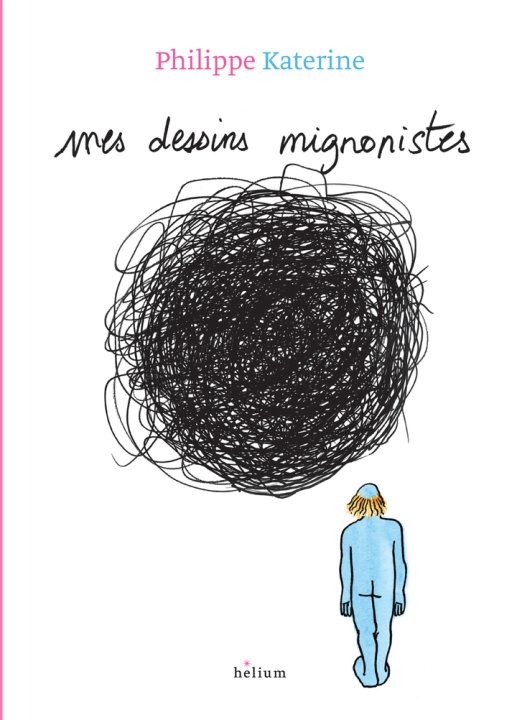 Philippe Katerine
mes dessins mignonistes
helium